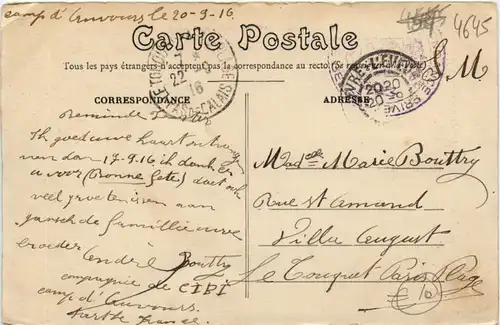 camp d'Auvours le 20-9-16
4645
Carte Postale
Tous les pays étrangers n'acceptent pas la correspondance au recto. (Se renseigner à la poste)
F. M.
CORRESPONDANCE
ADRESSE
LE TOUQUET
22 -9
16
PAS-DE-CALAIS
20 20
Beminde Zuster
Ik goed uwe kaart ontvangen
van dan 17-9-16 ik dank U
u voor (Bonne fete) doet ook
veel groetenissen aan
gansch de famillie uwe
broeder
André Bouttry
compagnie de CIBI
camp d'Auvours
Sarthe France.
Madelle Marie Bouttry
Rue St Amand
Villa August
Le Touquet Paris Plage
10